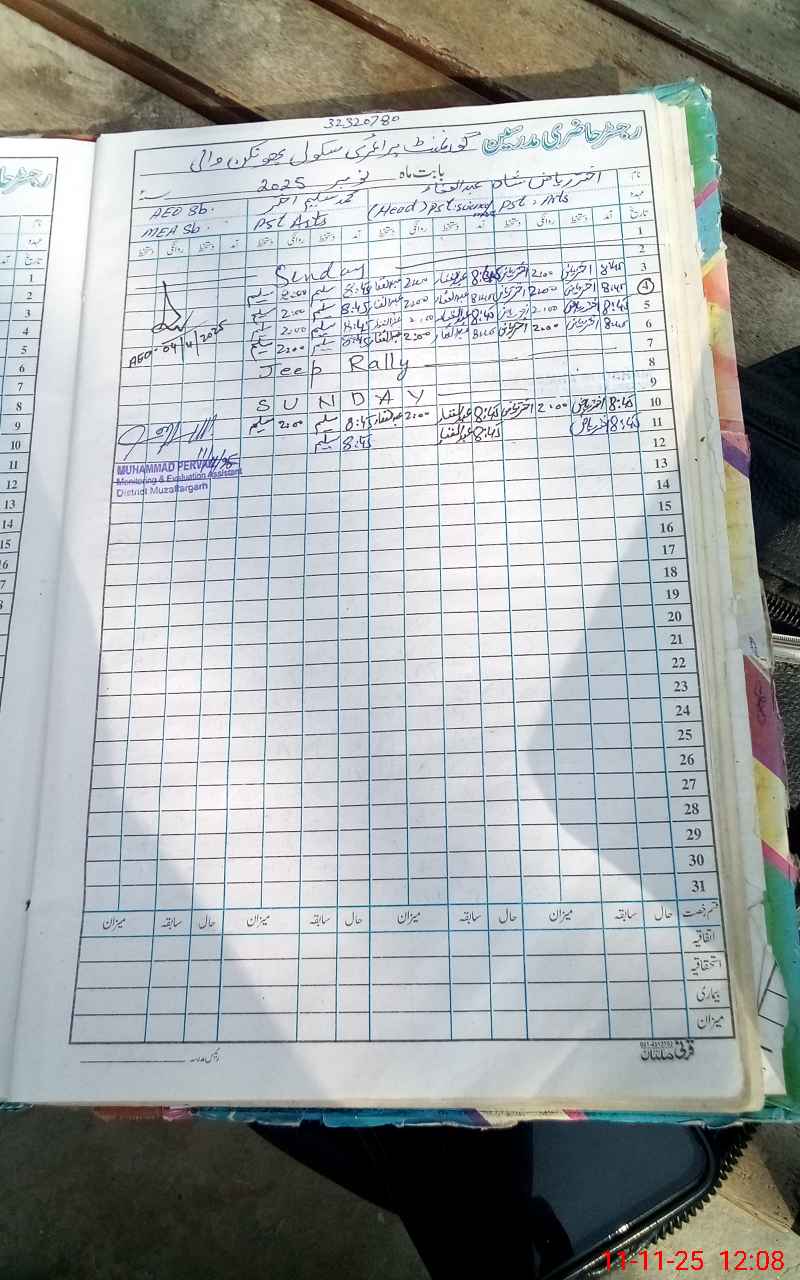 32320780
رجسٹر حاضری مدرسین گورنمنٹ پرائمری سکول بھوتگن والی
بابت ماہ نومبر 2025
نام اختر ریاض شاہ عبدالغفار محمد سلیم اختر AEO Sb.
عہدہ PST. Arts (Head) PST Science PST Arts MEA Sb.
تاریخ آمد دستخط روانگی دستخط آمد دستخط روانگی دستخط آمد دستخط روانگی دستخط آمد دستخط روانگی دستخط
1
2 Sunday
3 8:45 اختر ریاض 2:00 اختر ریاض 8:45 عبدالغفار 2:00 عبدالغفار 8:45 سلیم 2:00 سلیم
4 8:45 اختر ریاض 2:00 اختر ریاض 8:45 عبدالغفار 2:00 عبدالغفار 8:45 سلیم 2:00 سلیم
5 8:45 اختر ریاض 2:00 اختر ریاض 8:45 عبدالغفار 2:00 عبدالغفار 8:45 سلیم 2:00 سلیم
6 8:45 اختر ریاض 2:00 اختر ریاض 8:45 عبدالغفار 2:00 عبدالغفار 8:45 سلیم 2:00 سلیم
AEO. 04/11/2025
7 Jeep Rally
8
9 SUNDAY
10 8:45 اختر ریاض 2:00 اختر ریاض 8:45 عبدالغفار 2:00 عبدالغفار 8:45 سلیم 2:00 سلیم
11 8:45 اختر ریاض 8:45 عبدالغفار 8:45 سلیم
MUHAMMAD PERVAIZ
Monitoring & Evaluation Assistant
District Muzaffargarh
12
13
14
15
16
17
18
19
20
21
22
23
24
25
26
27
28
29
30
31
قسم رخصت حال سابقہ میزان حال سابقہ میزان حال سابقہ میزان حال سابقہ میزان
اتفاقیہ
استحقاقیہ
بیماری
میزان
رئیس مدرسہ
قریشی ملتان
11-11-25 12:08